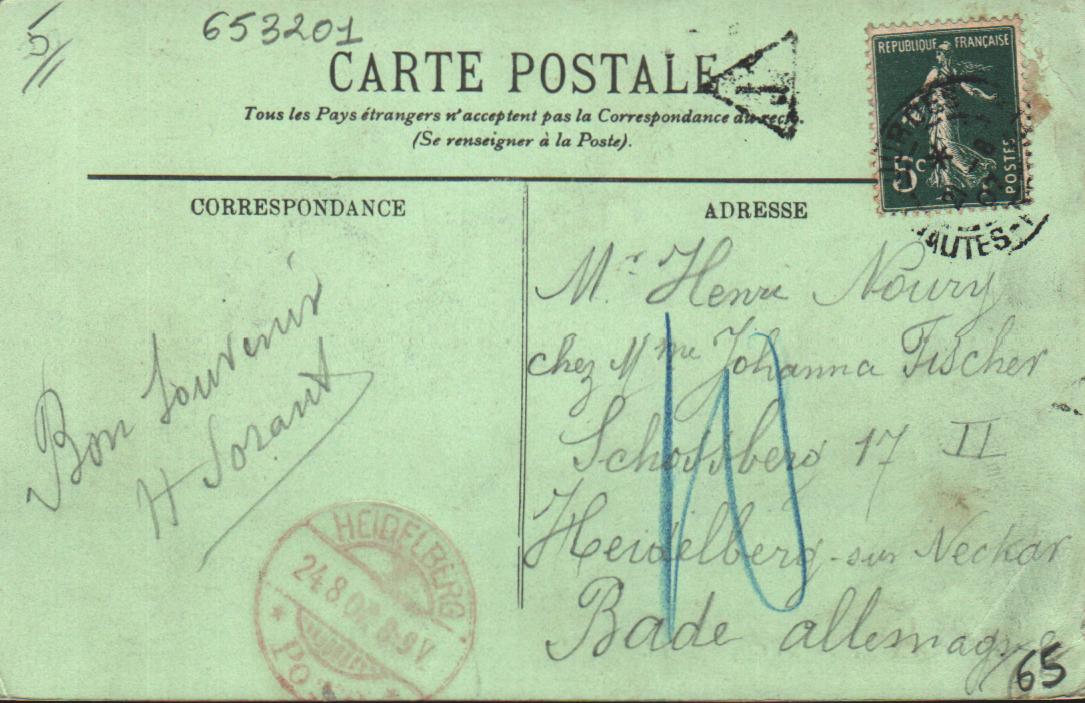 5/
653201
CARTE POSTALE
T
Tous les Pays étrangers n'acceptent pas la Correspondance au recto.
(Se renseigner à la Poste).
REPUBLIQUE FRANÇAISE
5c
POSTES
HAUTES-P
CORRESPONDANCE
ADRESSE
Bon Souvenir
H Sorant
Mr Henri Noury
chez Mme Johanna Fischer
Schossberg 17 II
Heidelberg-sur Neckar
Bade allemagne
10
HEIDELBERG
24.8.07. 8-9 V.
65